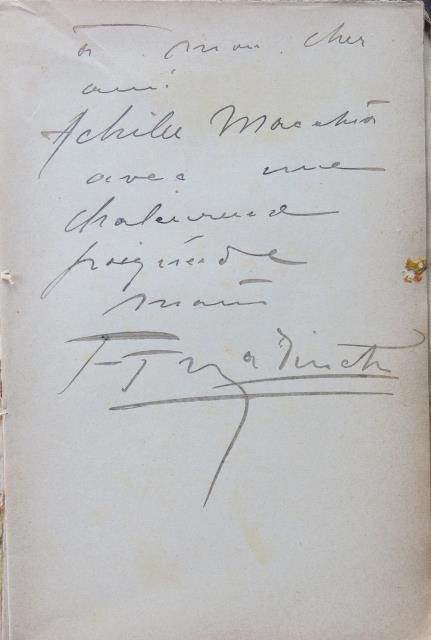 à mon cher
ami
Achille Macchia
avec une
chaleureuse
poignée de
main
F. T. Marinetti